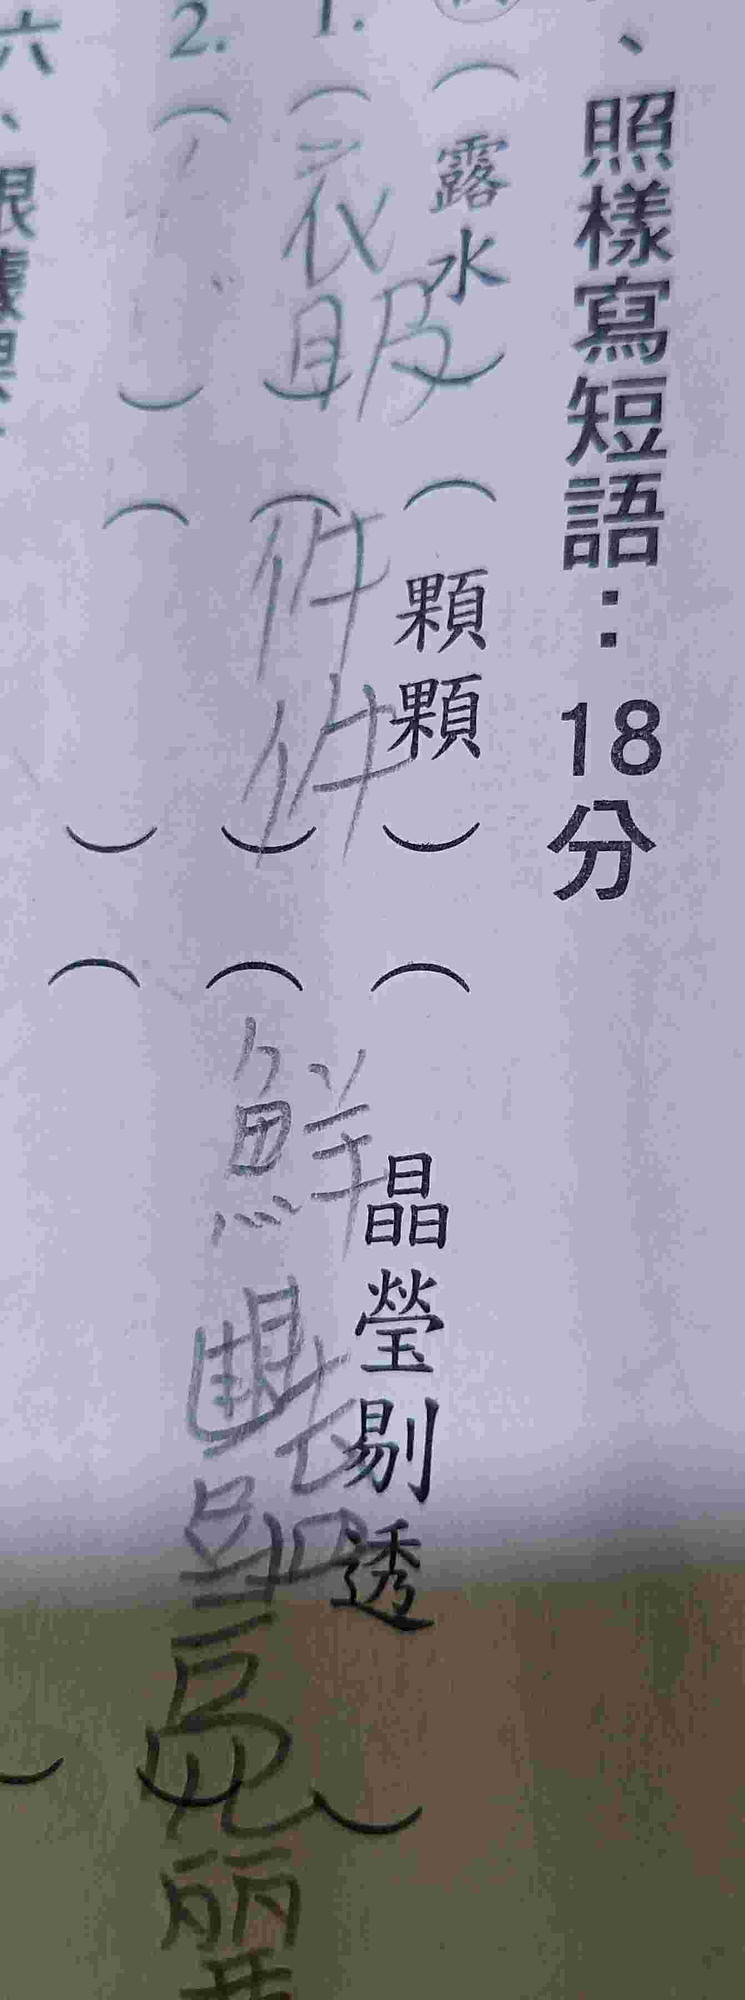 、照樣寫短語：18分
（露水）（顆顆）（晶瑩剔透）
1.（衣服）（件件）（鮮艷亮麗）
2.（）（）（）
六、